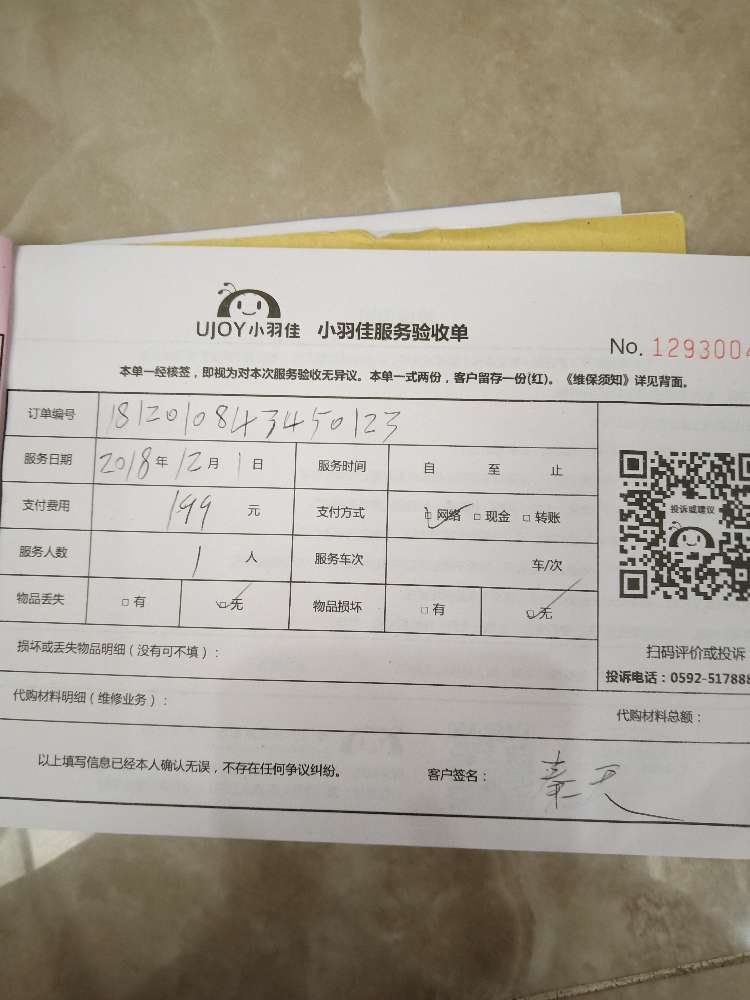 UJOY小羽佳 小羽佳服务验收单
No. 1293004
本单一经核签，即视为对本次服务验收无异议。本单一式两份，客户留存一份(红)。《维保须知》详见背面。
订单编号 1812010843450123
服务日期 2018年12月1日 服务时间 自 至 止
支付费用 199 元 支付方式 □网络 □现金 □转账
投诉或建议
服务人数 1 人 服务车次 车/次
物品丢失 □有 □无 物品损坏 □有 □无
损坏或丢失物品明细（没有可不填）：
扫码评价或投诉
投诉电话：0592-517888
代购材料明细（维修业务）：
代购材料总额：
以上填写信息已经本人确认无误，不存在任何争议纠纷。 客户签名：